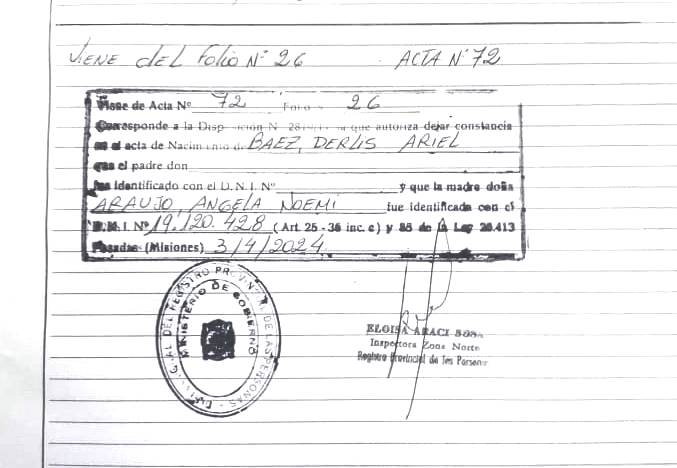 VIENE del folio N° 26 ACTA N° 72
Viene de Acta Nº 72 Folio 26
Corresponde a la Disposición N 28 que autoriza dejar constancia
en el acta de Nacimiento de BAEZ, DERLIS ARIEL
que el padre don
fue identificado con el D. N. I. Nº y que la madre doña
ARAUJO, ANGELA NOEMI fue identificada con el
D. N. I. Nº 19.120.428 (Art. 25 - 36 inc. c) y 85 de la Ley 20.413
Posadas (Misiones) 3/4/2024
REGISTRO PROVINCIAL DE LAS PERSONAS
MINISTERIO DE GOBIERNO
ELOISA ARACI SOSA
Inspectora Zona Norte
Registro Provincial de las Personas